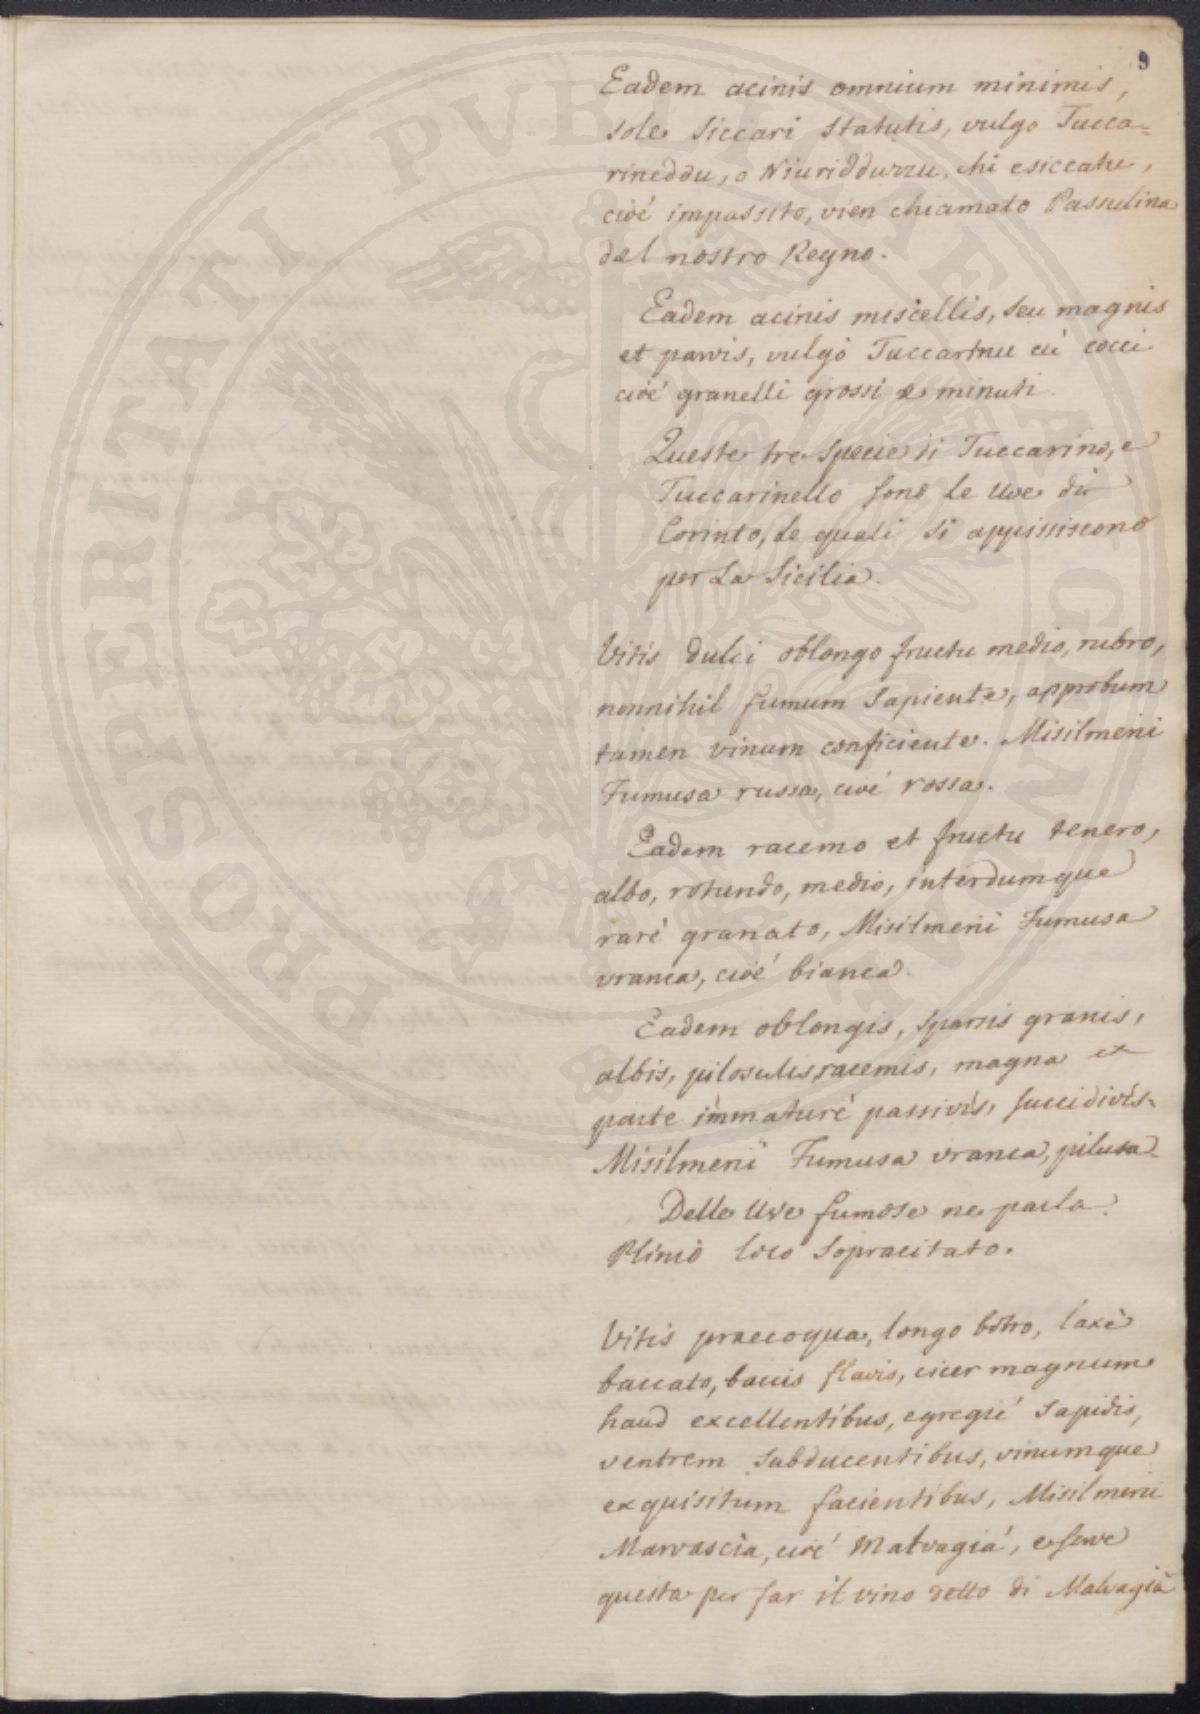 9
Eadem acinis omnium minimis,
sole siccari statutis, vulgo Tucca=
rineddu, o Niuridduzzu, chi esiccatu,
cioé impassito, vien chiamato Passulina
del nostro Regno.
Eadem acinis miscellis, seu magnis
et parvis, vulgò Tuccarinu cù cocci
cioé granelli grossi e minuti.
Queste tre specie di Tuccarino, e
Tuccarinello sono le Uve di
Corinto, le quali si appassiscono
per la Sicilia.
Vitis dulci oblongo fructu medio, rubro,
nonnihil fumum sapiente, approbum
tamen vinum conficiente. Misilmerii
Fumusa russa, cioé rossa.
Eadem racemo et fructu tenero,
albo, rotundo, medio, interdumque
raré granato, Misilmerii Fumusa
vranca, cioé bianca.
Eadem oblongis, sparsis granis,
albis, pilosulis, racemis, magna et
parte immaturé passivis, succidivis.
Misilmerii Fumusa vranca, pilusa.
Delle Uve fumose ne parla
Plinio loco sopracitato.
Vitis praecoqua, longo botro, laxè
baccato, baccis flavis, cicer magnum
haud excellentibus, egregié sapidis,
ventrem subducentibus, vinumque
exquisitum facientibus, Misilmerii
Marvascìa, cioé Malvagiá, e serve
questa per far il vino detto di Malvagià
PROSPERITATI PUBLICAE AUGENDAE